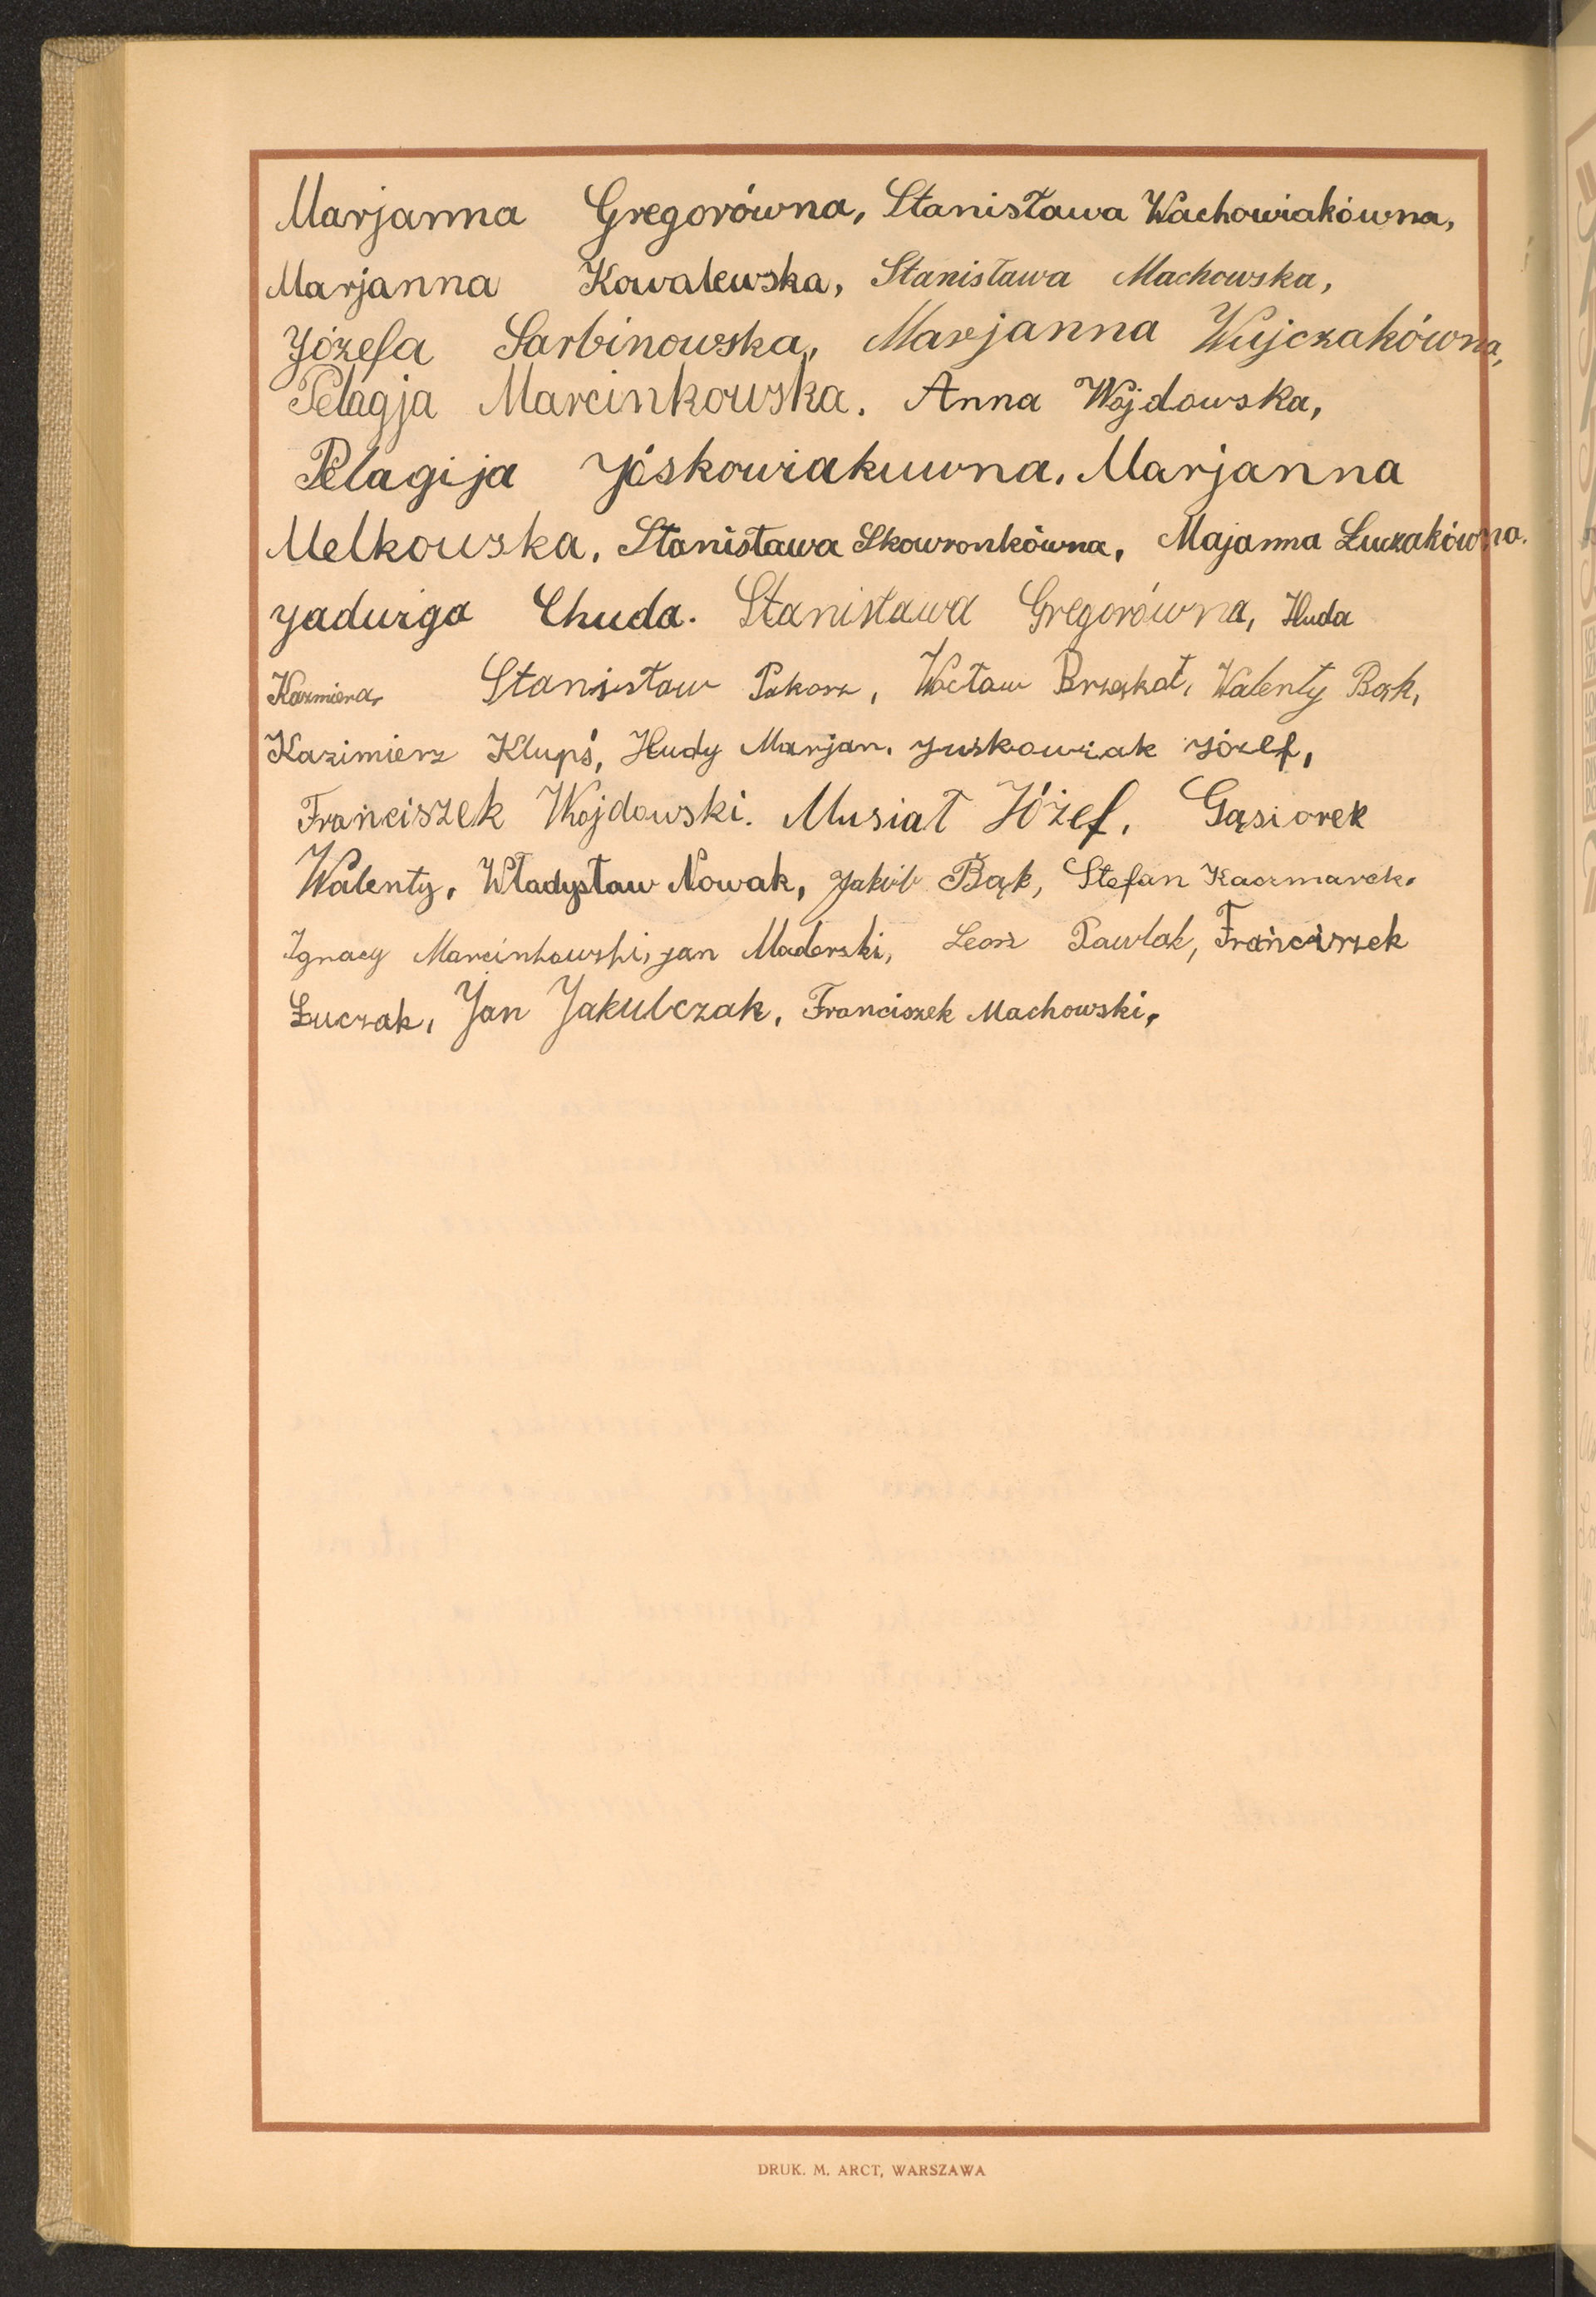 Marjanna Gregorówna, Stanisława Wachowiakówna,
Marjanna Kowalewska, Stanisława Machowska,
Józefa Sarbinowska, Marjanna Wujczakówna,
Pelagja Marcinkowska. Anna Wojdowska,
Pelagija Jóskowiakuwna. Marjanna
Melkowska, Stanisława Skowronkówna, Majanna Łuczakówna.
Jadwiga Chuda. Stanisława Gregorówna, Huda
Kazmiera, Stanisław Pokorz, Wacław Brząkał, Walenty Bąk,
Kazimierz Klupś, Hudy Marjan. Juskowiak Józef,
Franciszek Wojdowski. Musiał Józef, Gąsiorek
Walenty, Władysław Nowak, Jakób Bąk, Stefan Kaczmarek.
Ignacy Marcinkowski, Jan Maderski, Leon Pawlak, Franciszek
Łuczak, Jan Jakubczak, Franciszek Machowski,
DRUK. M. ARCT, WARSZAWA